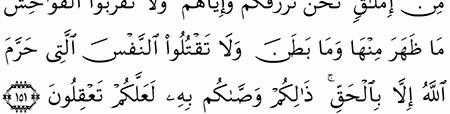 مِّنْ إِمْلَـٰقٍۢ ۖ نَّحْنُ نَرْزُقُكُمْ وَإِيَّاهُمْ ۖ وَلَا تَقْرَبُوا۟ ٱلْفَوَٰحِشَ
مَا ظَهَرَ مِنْهَا وَمَا بَطَنَ ۖ وَلَا تَقْتُلُوا۟ ٱلنَّفْسَ ٱلَّتِى حَرَّمَ
ٱللَّهُ إِلَّا بِٱلْحَقِّ ۚ ذَٰلِكُمْ وَصَّىٰكُم بِهِۦ لَعَلَّكُمْ تَعْقِلُونَ ١٥١